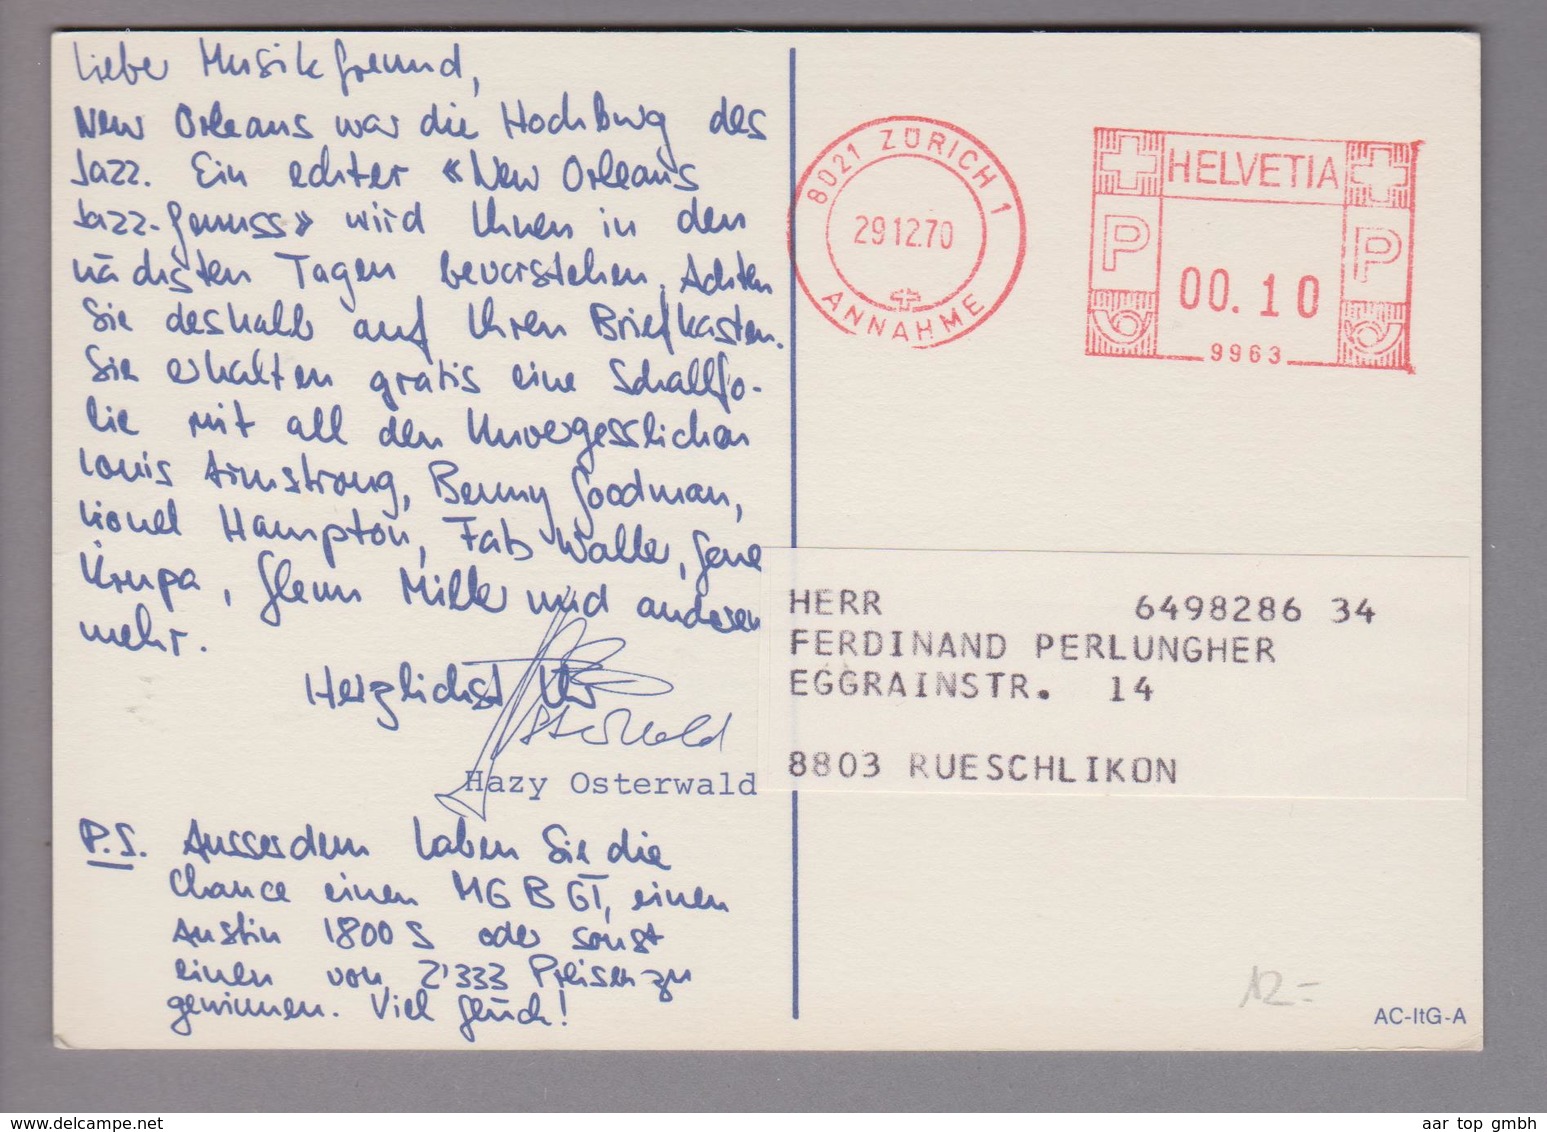 Liebe Musikfreund,
New Orleans war die Hochburg des
Jazz. Ein echter «New Orleans
Jazz-Genuss» wird Ihnen in den
nächsten Tagen bevorstehen. Achten
Sie deshalb auf Ihren Briefkasten.
Sie erhalten gratis eine Schallfo-
lie mit all den Unvergesslichen
Louis Armstrong, Benny Goodman,
Lionel Hampton, Fats Waller, Gene
Krupa, Glenn Miller und anderen
mehr.
Herzlichst Ihr
Osterwald
Hazy Osterwald
P.S. Ausserdem haben Sie die
Chance einen MG B GT, einen
Austin 1800 S oder sonst
einen von 2'333 Preisen zu
gewinnen. Viel Glück!
8021 ZÜRICH 1
29.12.70
ANNAHME
HELVETIA
P P
00.10
9963
HERR 6498286 34
FERDINAND PERLUNGHER
EGGRAINSTR. 14
8803 RUESCHLIKON
12.-
AC-ItG-A
aar top gmbh